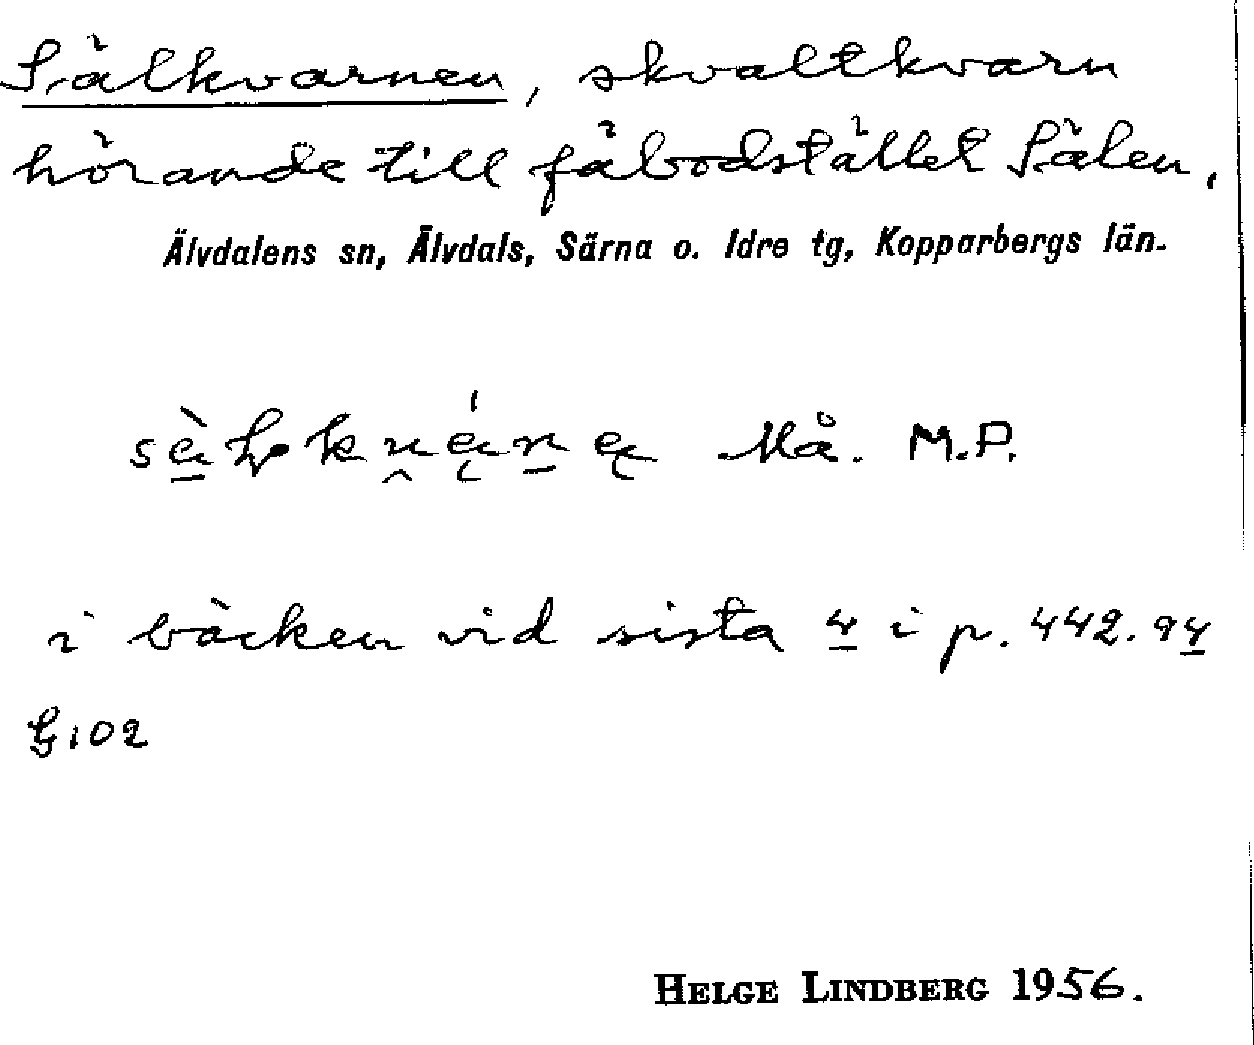 Sälkvarnen, skvaltkvarn
hörande till fäbodstället Sälen,
Älvdalens sn, Älvdals, Särna o. Idre tg, Kopparbergs län.
Må. M.P.
i bäcken vid sista 4 i p. 442.94
G102
HELGE LINDBERG 1956.